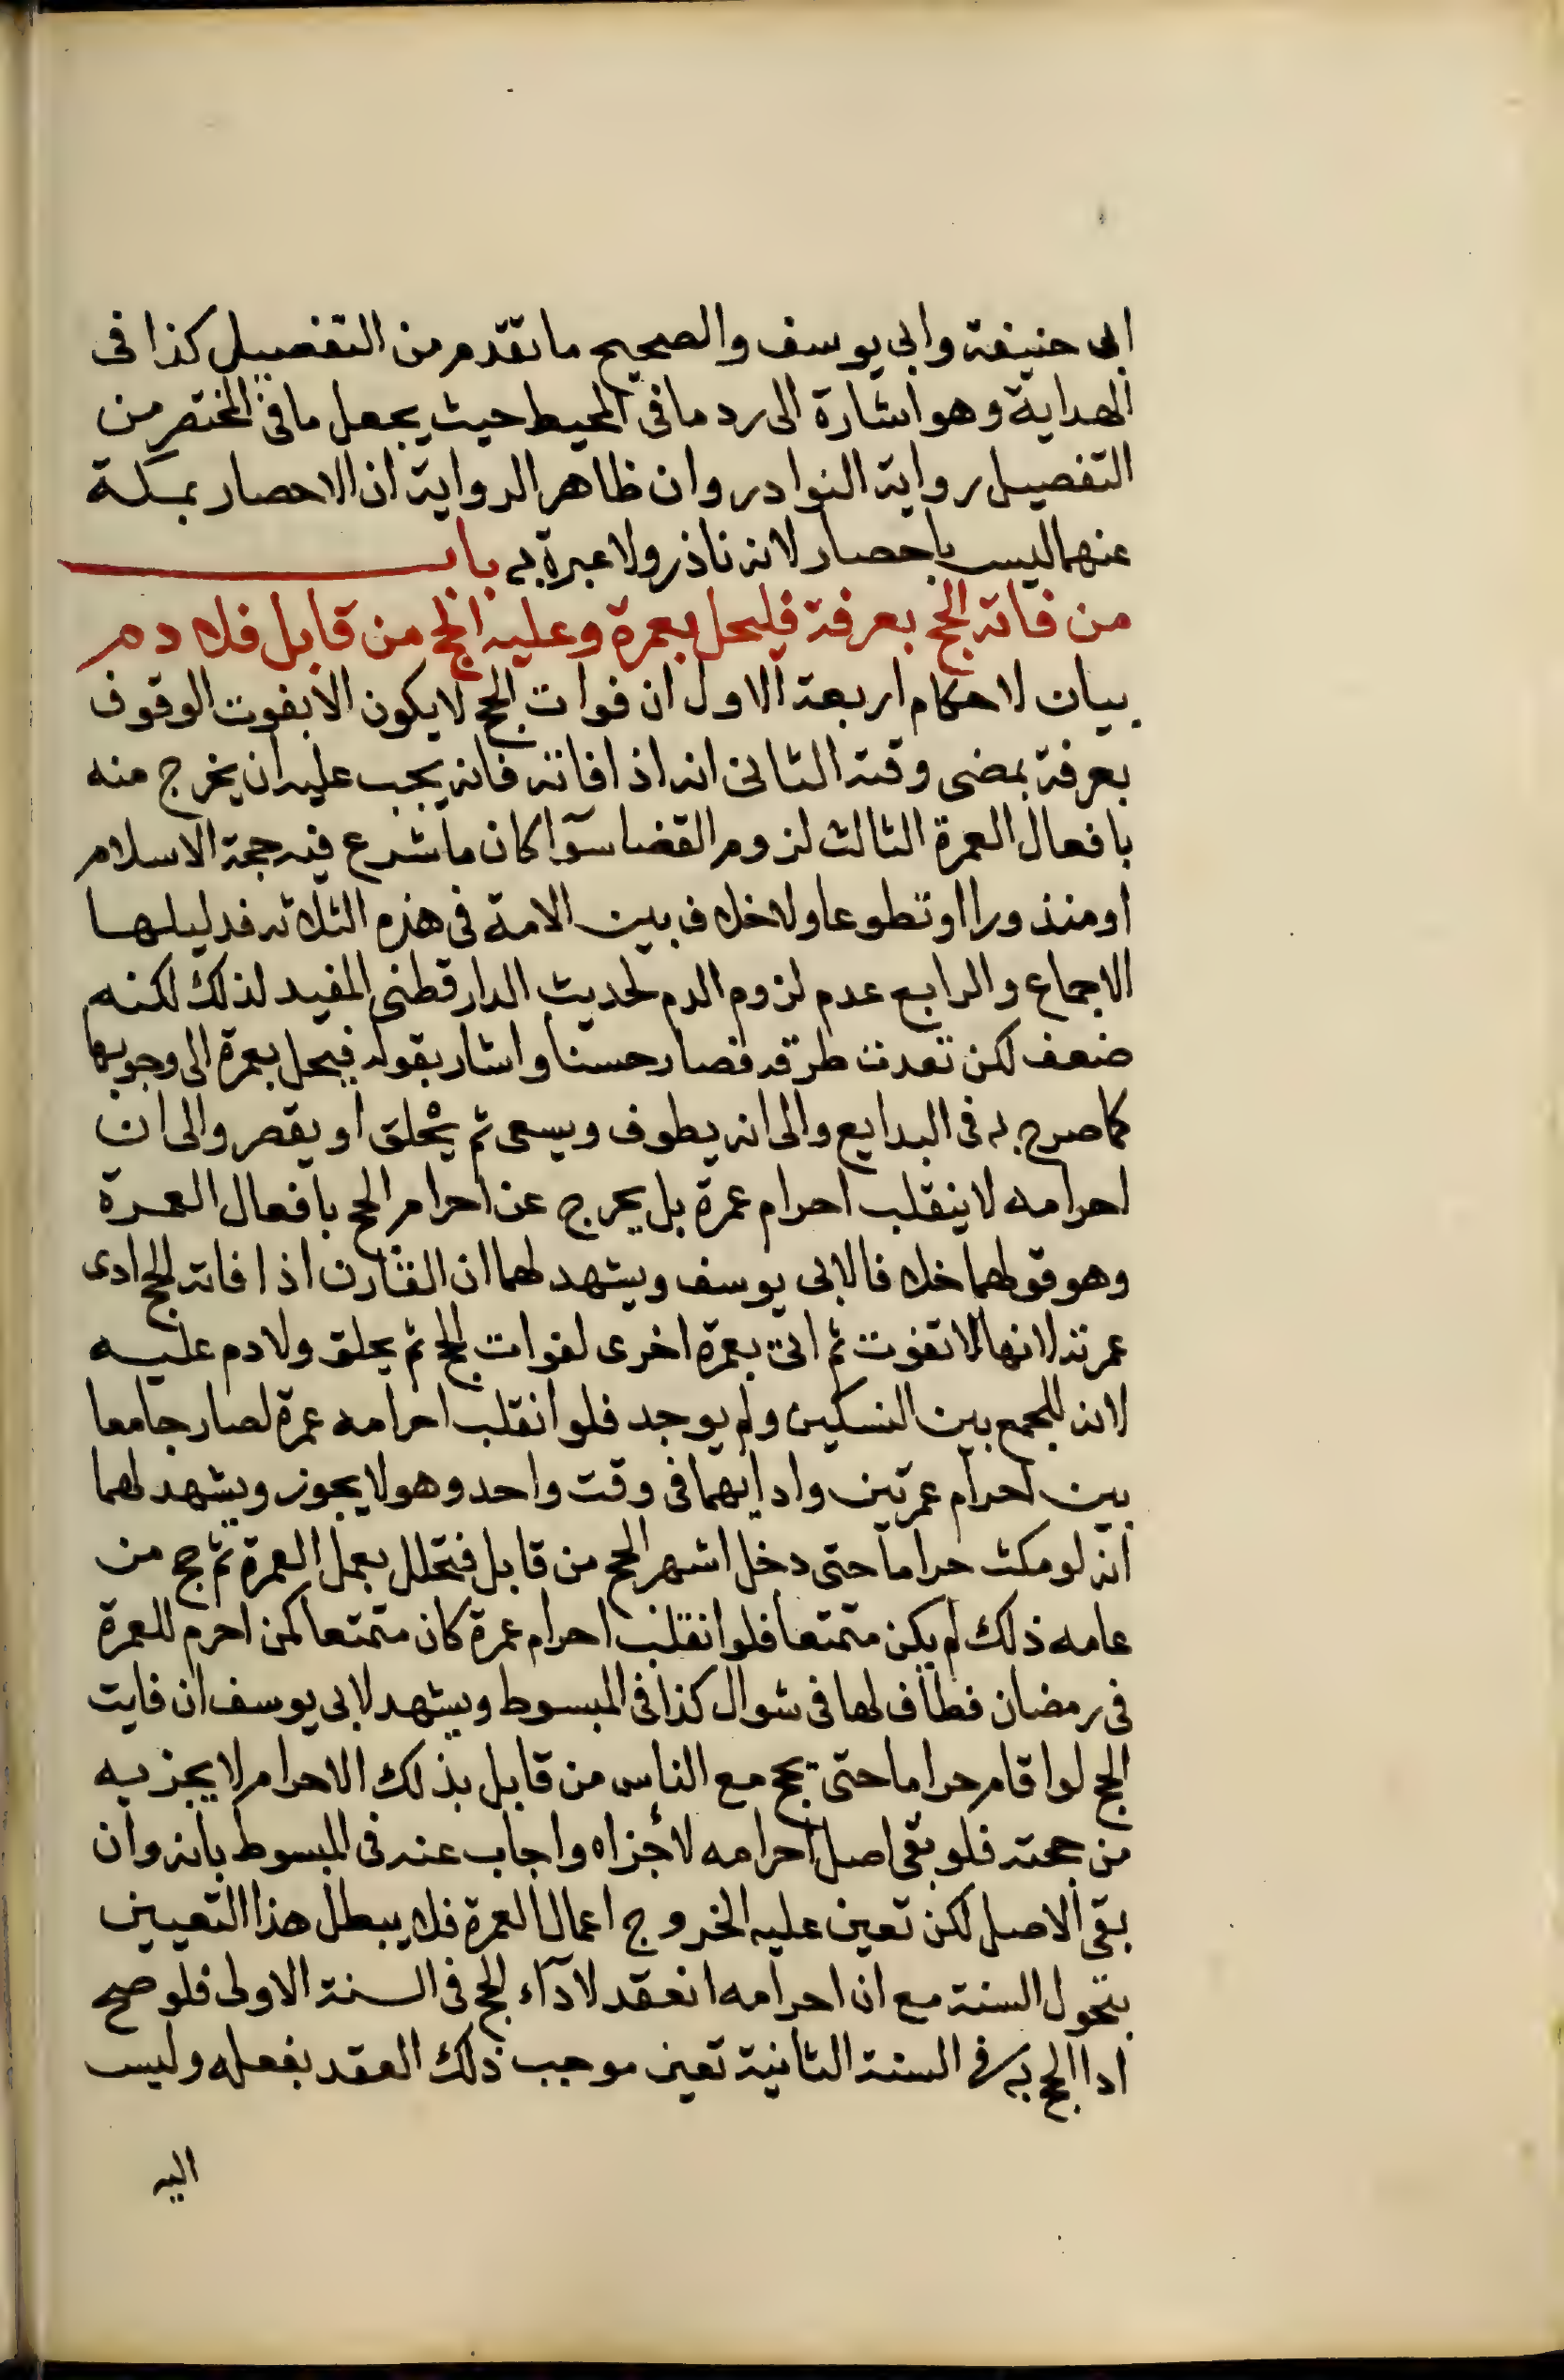 ابى حنيفة وابى يوسف والصحيح ما تقدم من التفصيل كذا فى
الهداية وهو اشارة الى رد ما فى المحيط حيث يجعل ما فى المختصر من
التفصيل رواية النوادر وان ظاهر الرواية ان الاحصار بمكة
عنهما ليس باحصار لانه نادر ولا عبرة به باب
من فاته الحج بعرفة فليحل بعمرة وعليه الحج من قابل فلا دم
بيان لاحكام اربعة الاول ان فوات الحج لا يكون الا بفوت الوقوف
بعرفة بمضى وقته الثانى انه اذا فاته فانه يجب عليه ان يخرج منه
بافعال العمرة الثالث لزوم القضا سوآ كان ما شرع فيه حجة الاسلام
او منذورا او تطوعا ولا خلاف بين الامة فى هذه الثلاثه فدليلها
الاجماع والرابع عدم لزوم الدم لحديث الدارقطنى المفيد لذلك لكنه
ضعف لكن تعددت طرقه فصار حسنا واشار بقوله فيحل بعمرة الى وجوبها
كما صرح به فى البدايع والى انه يطوف ويسعى ثم يحلق او يقصر والى ان
احرامه لا ينقلب احرام عمرة بل يخرج عن احرام الحج بافعال العمرة
وهو قولهما خلافا لابى يوسف ويشهد لهما ان القارن اذا فاته الحج ادى
عمرته لانها لا تفوت ثم اتى بعمرة اخرى لفوات الحج ثم يحلق ولا دم عليه
لانه للجمع بين النسكين ولم يوجد فلو انقلب احرامه عمرة لصار جامعا
بين احرام عمرتين وادايهما فى وقت واحد وهو لا يجوز ويشهد لهما
انه لو مكث حراما حتى دخل اشهر الحج من قابل فتحلل بعمل العمرة ثم حج من
عامه ذلك لم يكن متمتعا فلو انقلب احرام عمرة كان متمتعا كمن احرم للعمرة
فى رمضان فطاف لها فى شوال كذا فى المبسوط ويشهد لابى يوسف ان فايت
الحج لو اقام حراما حتى يحج مع الناس من قابل بذلك الاحرام لا يجزيه
من حجته فلو بقى اصل احرامه لأجزاه واجاب عنه فى المبسوط بانه وان
بقى الاصل لكن تعين عليه الخروج اعمال العمرة فلا يبطل هذا التعيين
بتحول السنة مع ان احرامه انعقد لادآء الحج فى السنة الاولى فلو صح
ادا الحج به فى السنة الثانية تعين موجب ذلك العقد بفعله وليس
اليه